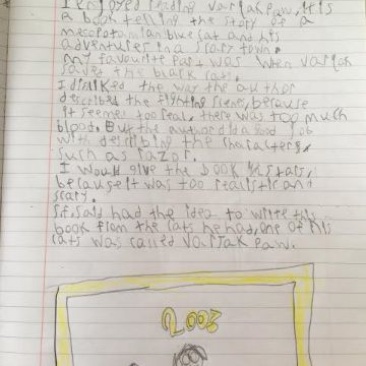 I enjoyed reading varjak paw, it is
a book telling the story of a
mesopotamian blue cat and his
adventures in a scary town.
my favourite part was when varjak
saved the black cats.
I disliked the way the author
described the fighting scene, because
it seemed too real, there was too much
blood. But the author did a good job
with describing the characters,
such as razor.
I would give the book stars,
because it was too realistic and
scary.
S.f. Said had the idea to write this
book from the cats he had, one of his
cats was called varjak paw.
2003